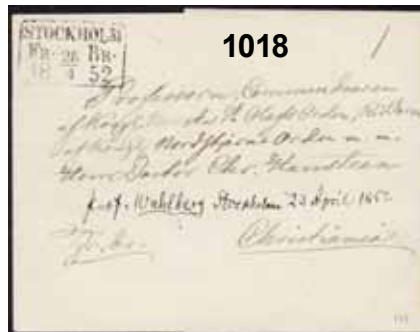 1018
STOCKHOLM
FR. 26 BR.
18 4 52
Professorn, Commendeuren
af Kongl. St. Olafs Orden, Riddaren
af Kongl. Nordstjerne Orden m. m.
Herr Doctor Chr. Hansteen
prof. Wahlberg Stockholm 23 April 1852
Fr. br.
Christiania